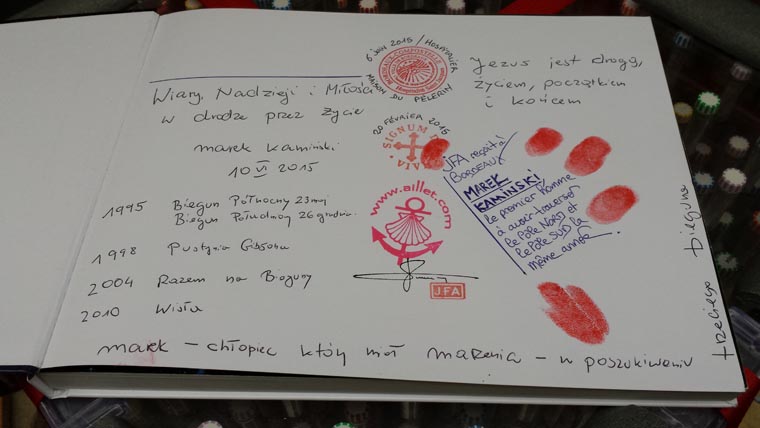 Wiary, Nadzieji i Miłości
w drodze przez życie
marek Kamiński
10 VI 2015
1995 Biegun Północny 23 maj
Biegun Południowy 26 grudnia
1998 Pustynia Gibsona
2004 Razem na Bieguny
2010 Wisła
marek – chłopiec który miał marzenia – w poszukiwaniu
trzeciego bieguna
6 JUIN 2015 / HOSPITALIER
MAISON DU PÈLERIN
20 FÉVRIER 2015
SIGNUM
VIVI
www.aillet.com
JFA
Jezus jest drogą,
życiem, początkiem
i końcem
JFA reçoit à
BORDEAUX
MAREK
KAMINSKI
le premier homme
à avoir traversé
le Pôle NORD et
le Pôle SUD la
même année.